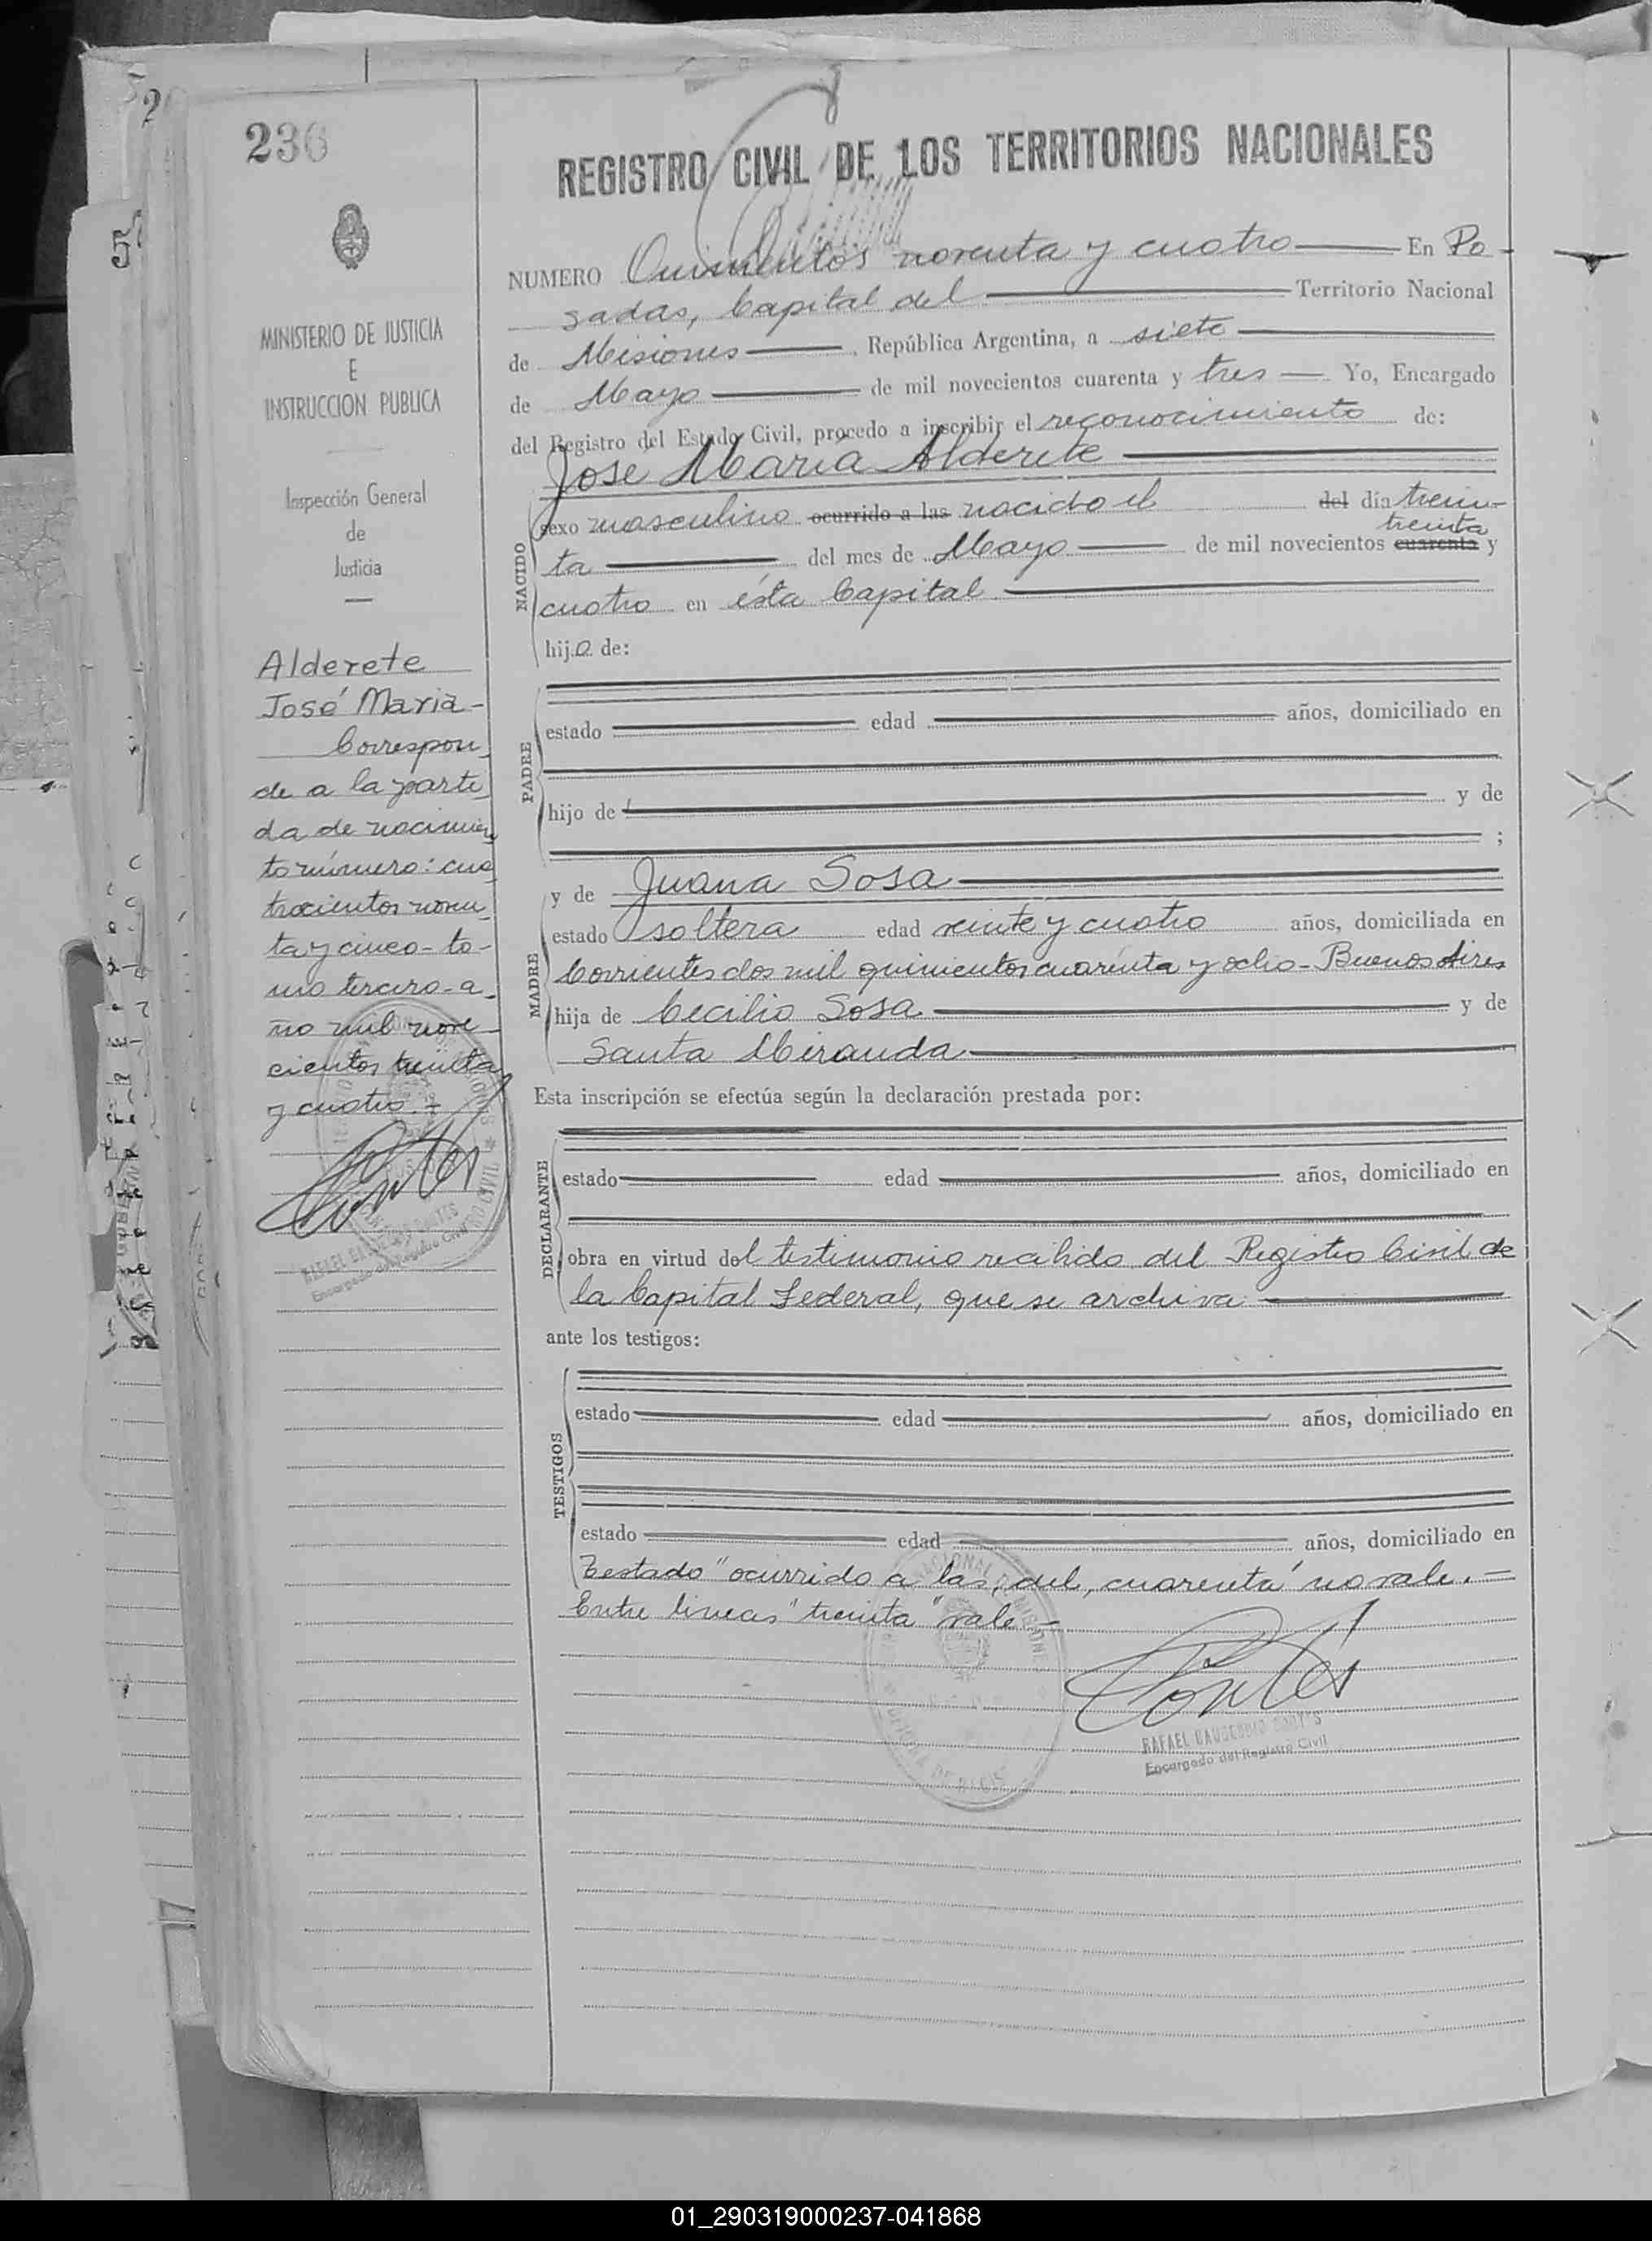 236
REGISTRO CIVIL DE LOS TERRITORIOS NACIONALES
MINISTERIO DE JUSTICIA
E
INSTRUCCION PUBLICA
Inspección General
de
Justicia
Alderete
José Maria-
Correspon
de a la parti
da de nacimien
to número: cua
trocientos noven
ta y cinco - to-
mo tercero - a
ño mil nove
cientos treinta
y cuatro.-
NUMERO Quinientos noventa y cuatro En Po-
sadas, Capital del Territorio Nacional
de Misiones , República Argentina, a siete
de Mayo de mil novecientos cuarenta y tres Yo, Encargado
del Registro del Estado Civil, procedo a inscribir el reconocimiento de:
José Maria Alderete
NACIDO
sexo masculino ocurrido a las nacido el del día trein-
treinta
ta del mes de Mayo de mil novecientos cuarenta y
cuatro en ésta Capital
hijo de:
PADRE
estado edad años, domiciliado en
hijo de y de
;
MADRE
y de Juana Sosa
estado soltera edad veinte y cuatro años, domiciliada en
Corrientes dos mil quinientos cuarenta y ocho - Buenos Aires
hija de Cecilio Sosa y de
Santa Miranda
Esta inscripción se efectúa según la declaración prestada por:
DECLARANTE
estado edad años, domiciliado en
obra en virtud del testimonio recibido del Registro Civil de
la Capital Federal, que se archiva
ante los testigos:
TESTIGOS
estado edad años, domiciliado en
estado edad años, domiciliado en
Testado "ocurrido a las, del, cuarenta" no vale.-
Entre lineas "treinta" vale-
RAFAEL GAUDENCIO
Encargado del Registro Civil
01_290319000237-041868